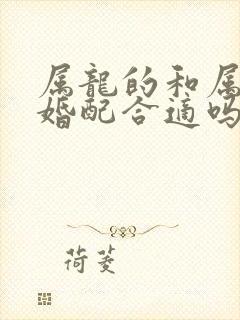 属龍的和属
婚配合適吗
荷菱